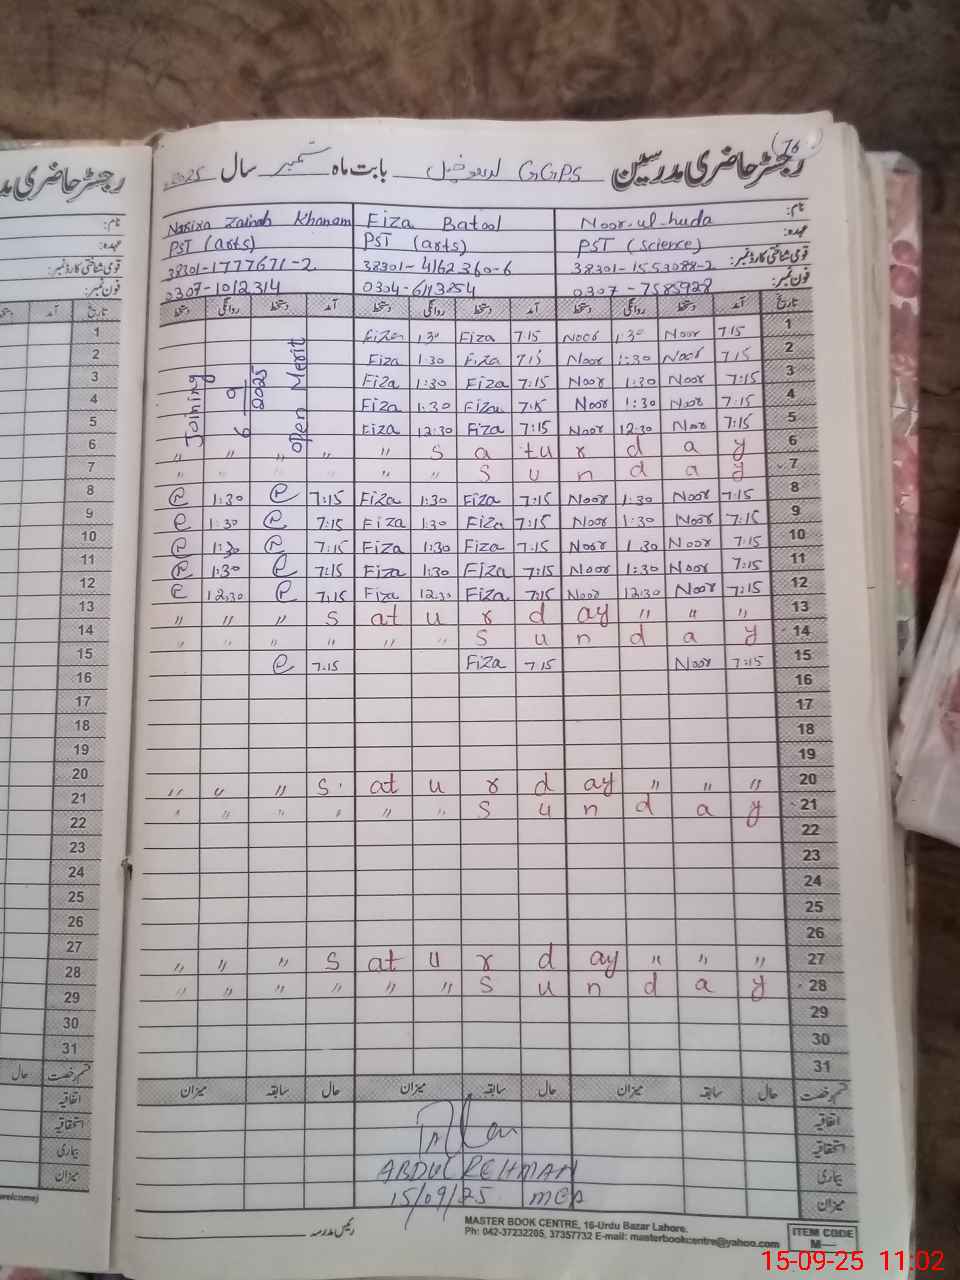 76
رجسٹر حاضری مدرسین GGPS بابت ماہ ستمبر سال 2025
نام: Noor-ul-huda Fiza Batool Zainab Khanam
عہدہ: PST (Science) PST (arts) PST (arts)
قومی شناختی کارڈ نمبر: 38301-1553088-2 38301-4162360-6 38301-1777671-2
فون نمبر: 0307-7585928 0307-1012314
تاریخ آمد دستخط روانگی دستخط آمد دستخط روانگی دستخط آمد دستخط روانگی دستخط
1 7:15 Noor 1:30 Noor 7:15 Fiza 1:30 Fiza
2 7:15 Noor 1:30 Noor 7:15 Fiza 1:30 Fiza
3 7:15 Noor 1:30 Noor 7:15 Fiza 1:30 Fiza
4 7:15 Noor 1:30 Noor 7:15 Fiza 1:30 Fiza
5 7:15 Noor 12:30 Noor 7:15 Fiza 12:30 Fiza
Joining 6/9/2025 open Merit
6 " " " " " Saturday
7 " " " " " " Sunday
8 7:15 Noor 1:30 Noor 7:15 Fiza 1:30 Fiza 7:15 1:30
9 7:15 Noor 1:30 Noor 7:15 Fiza 1:30 Fiza 7:15 1:30
10 7:15 Noor 1:30 Noor 7:15 Fiza 1:30 Fiza 7:15 1:30
11 7:15 Noor 1:30 Noor 7:15 Fiza 1:30 Fiza 7:15 1:30
12 7:15 Noor 12:30 Noor 7:15 Fiza 12:30 Fiza 7:15 12:30
13 " " " Saturday " " "
14 " " " " " " Sunday
15 7:15 Noor 7:15 Fiza 7:15
16
17
18
19
20 " " " Saturday " " "
21 " " " " " " Sunday
22
23
24
25
26
27 " " " Saturday " " "
28 " " " " " " Sunday
29
30
31
قسم رخصت حال سابقہ میزان حال سابقہ میزان حال سابقہ میزان
اتفاقیہ
استحقاقیہ
بیماری
میزان
ABDUL REHMAN
15/09/25 MEA
رئیس مدرسہ
MASTER BOOK CENTRE, 16-Urdu Bazar Lahore.
Ph: 042-37232205, 37357732 E-mail: masterbookcentre@yahoo.com
ITEM CODE
M—
رجسٹر حاضری
نام:
عہدہ:
قومی شناختی کارڈ نمبر:
فون نمبر:
تاریخ آمد
1
2
3
4
5
6
7
8
9
10
11
12
13
14
15
16
17
18
19
20
21
22
23
24
25
26
27
28
29
30
31
قسم رخصت حال
اتفاقیہ
استحقاقیہ
بیماری
میزان
15-09-25 11:02